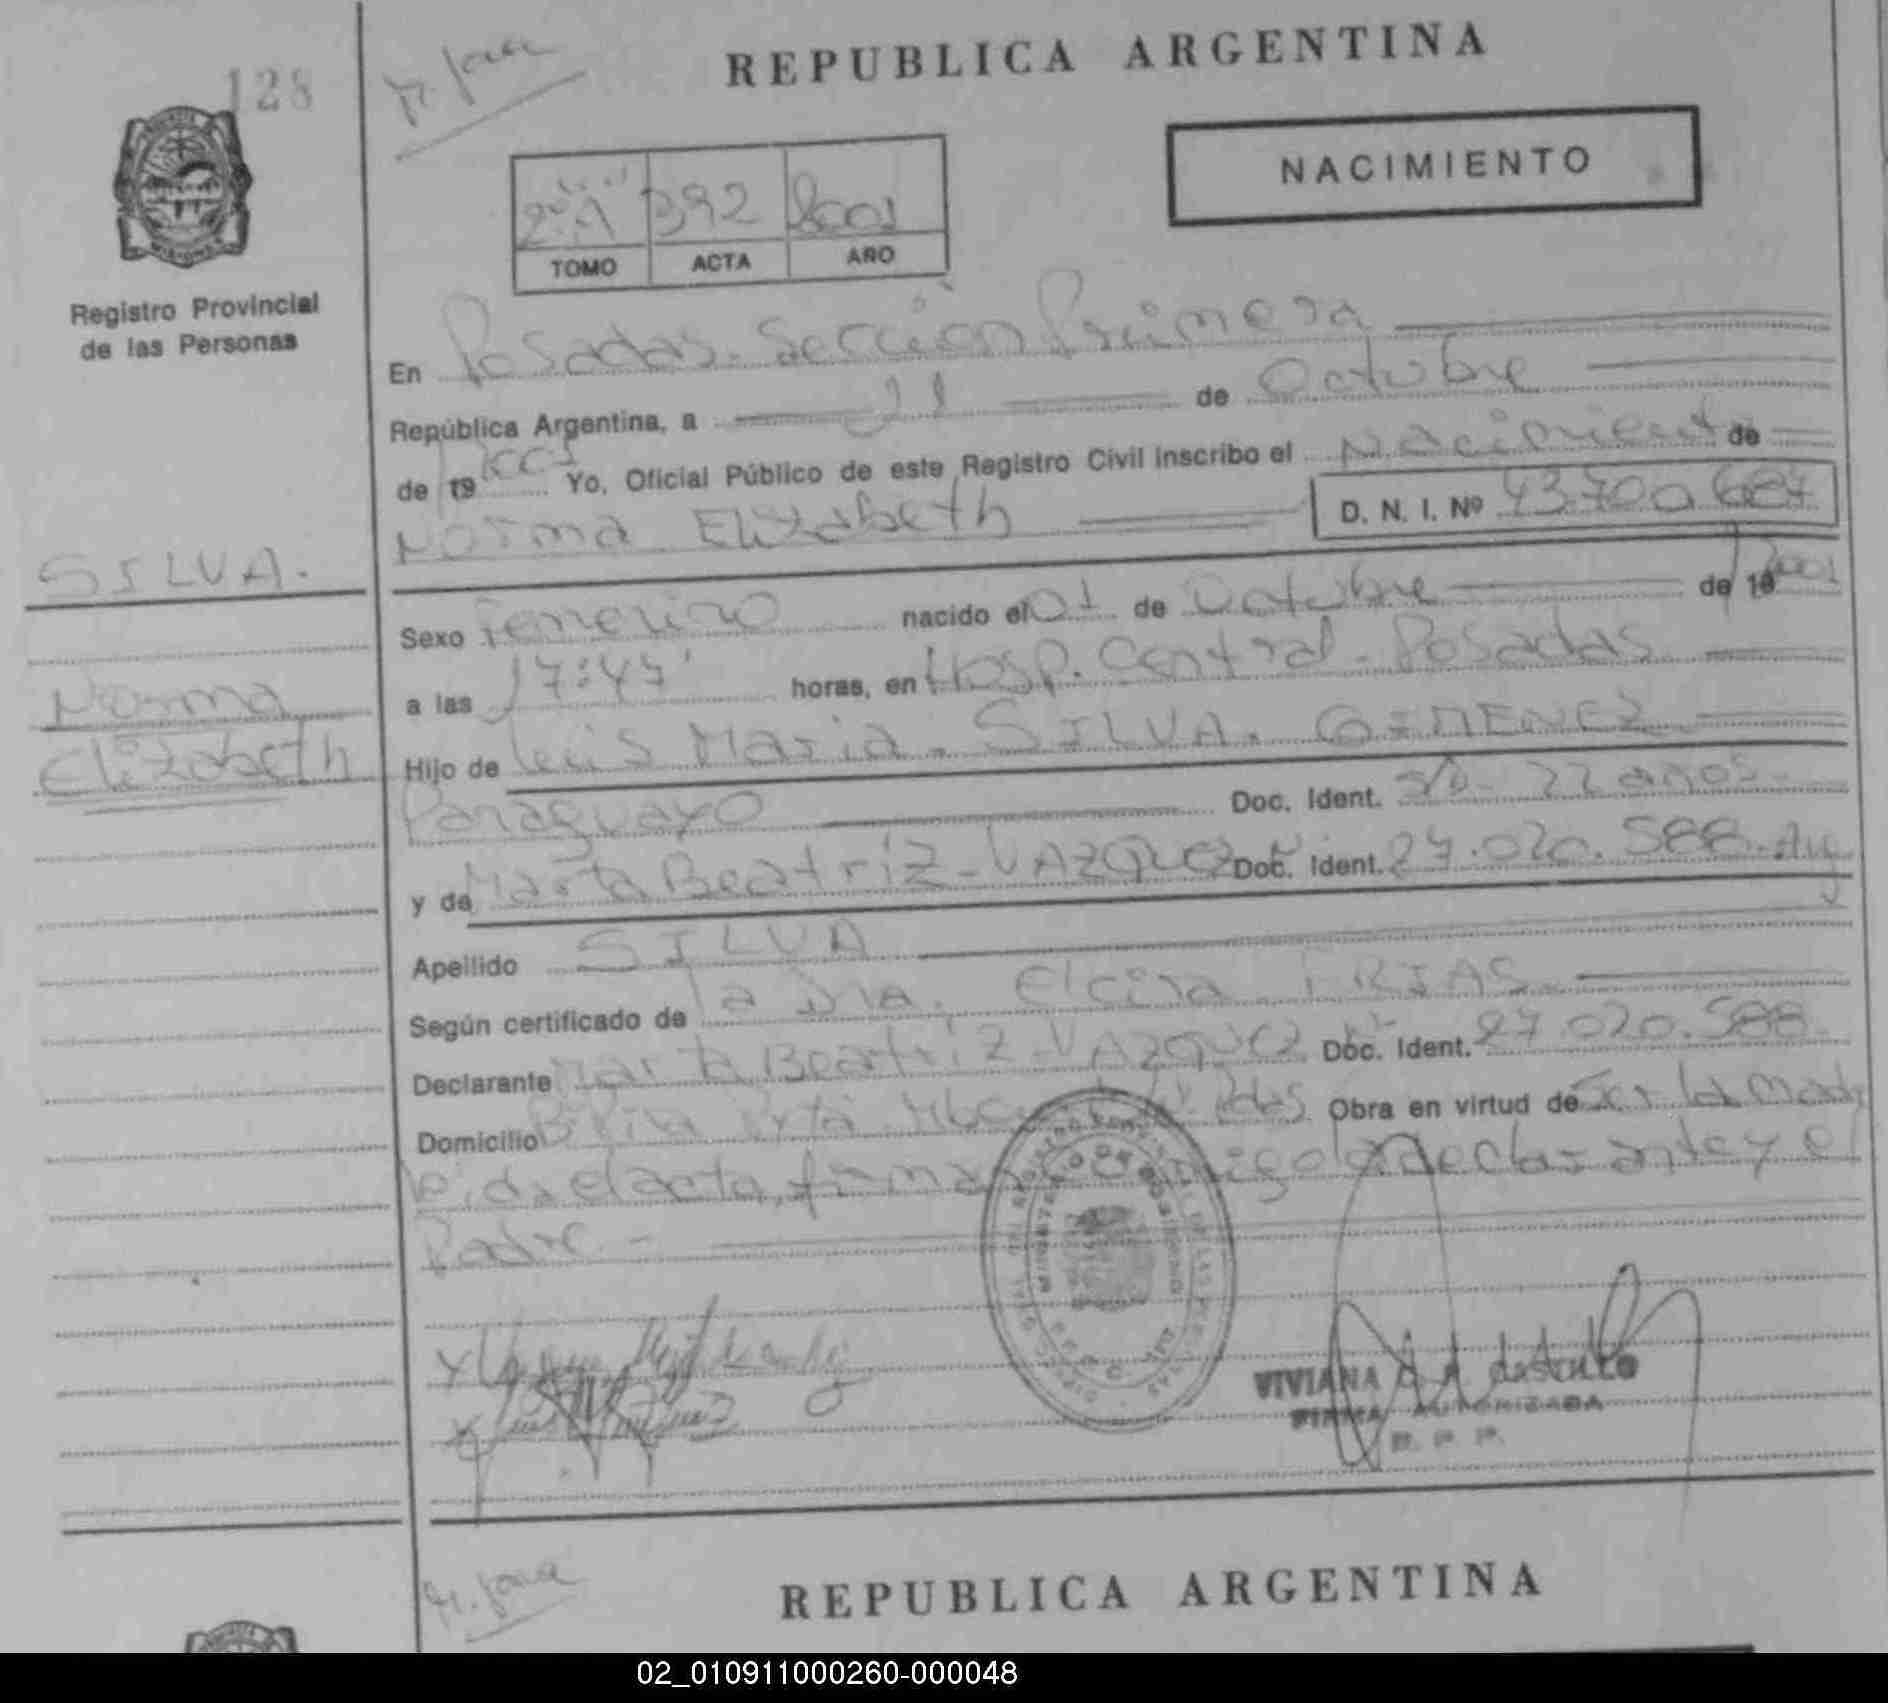 128
REPUBLICA ARGENTINA
NACIMIENTO
2º A 392 2001
TOMO ACTA AÑO
Registro Provincial
de las Personas
En Posadas. Sección Primera
República Argentina, a de Octubre
de 19 Yo, Oficial Público de este Registro Civil inscribo el Nacimiento de
Norma Elizabeth D. N. I. Nº 43.700.687
SILVA.
Norma
Elizabeth
Sexo Femenino nacido el 01 de Octubre de 19 2001
a las 17:45 horas, en Hosp. Central - Posadas
Hijo de Luis Maria - SILVA. GIMENEZ
Paraguayo Doc. Ident. s/d - 22 años.
y de Marta Beatriz - VAZQUEZ Doc. Ident. 27.020.588. Arg
Apellido SILVA
Según certificado de la Dra. Elcira FRIAS
Declarante Marta Beatriz - VAZQUEZ Doc. Ident. 27.020.588.
Domicilio Pdas Obra en virtud de Ser la madre
leida el acta, firma conmigo la declarante y el
Padre. -
VIVIANA
FIRMA AUTORIZADA
R. P. P.
REPUBLICA ARGENTINA
02_010911000260-000048